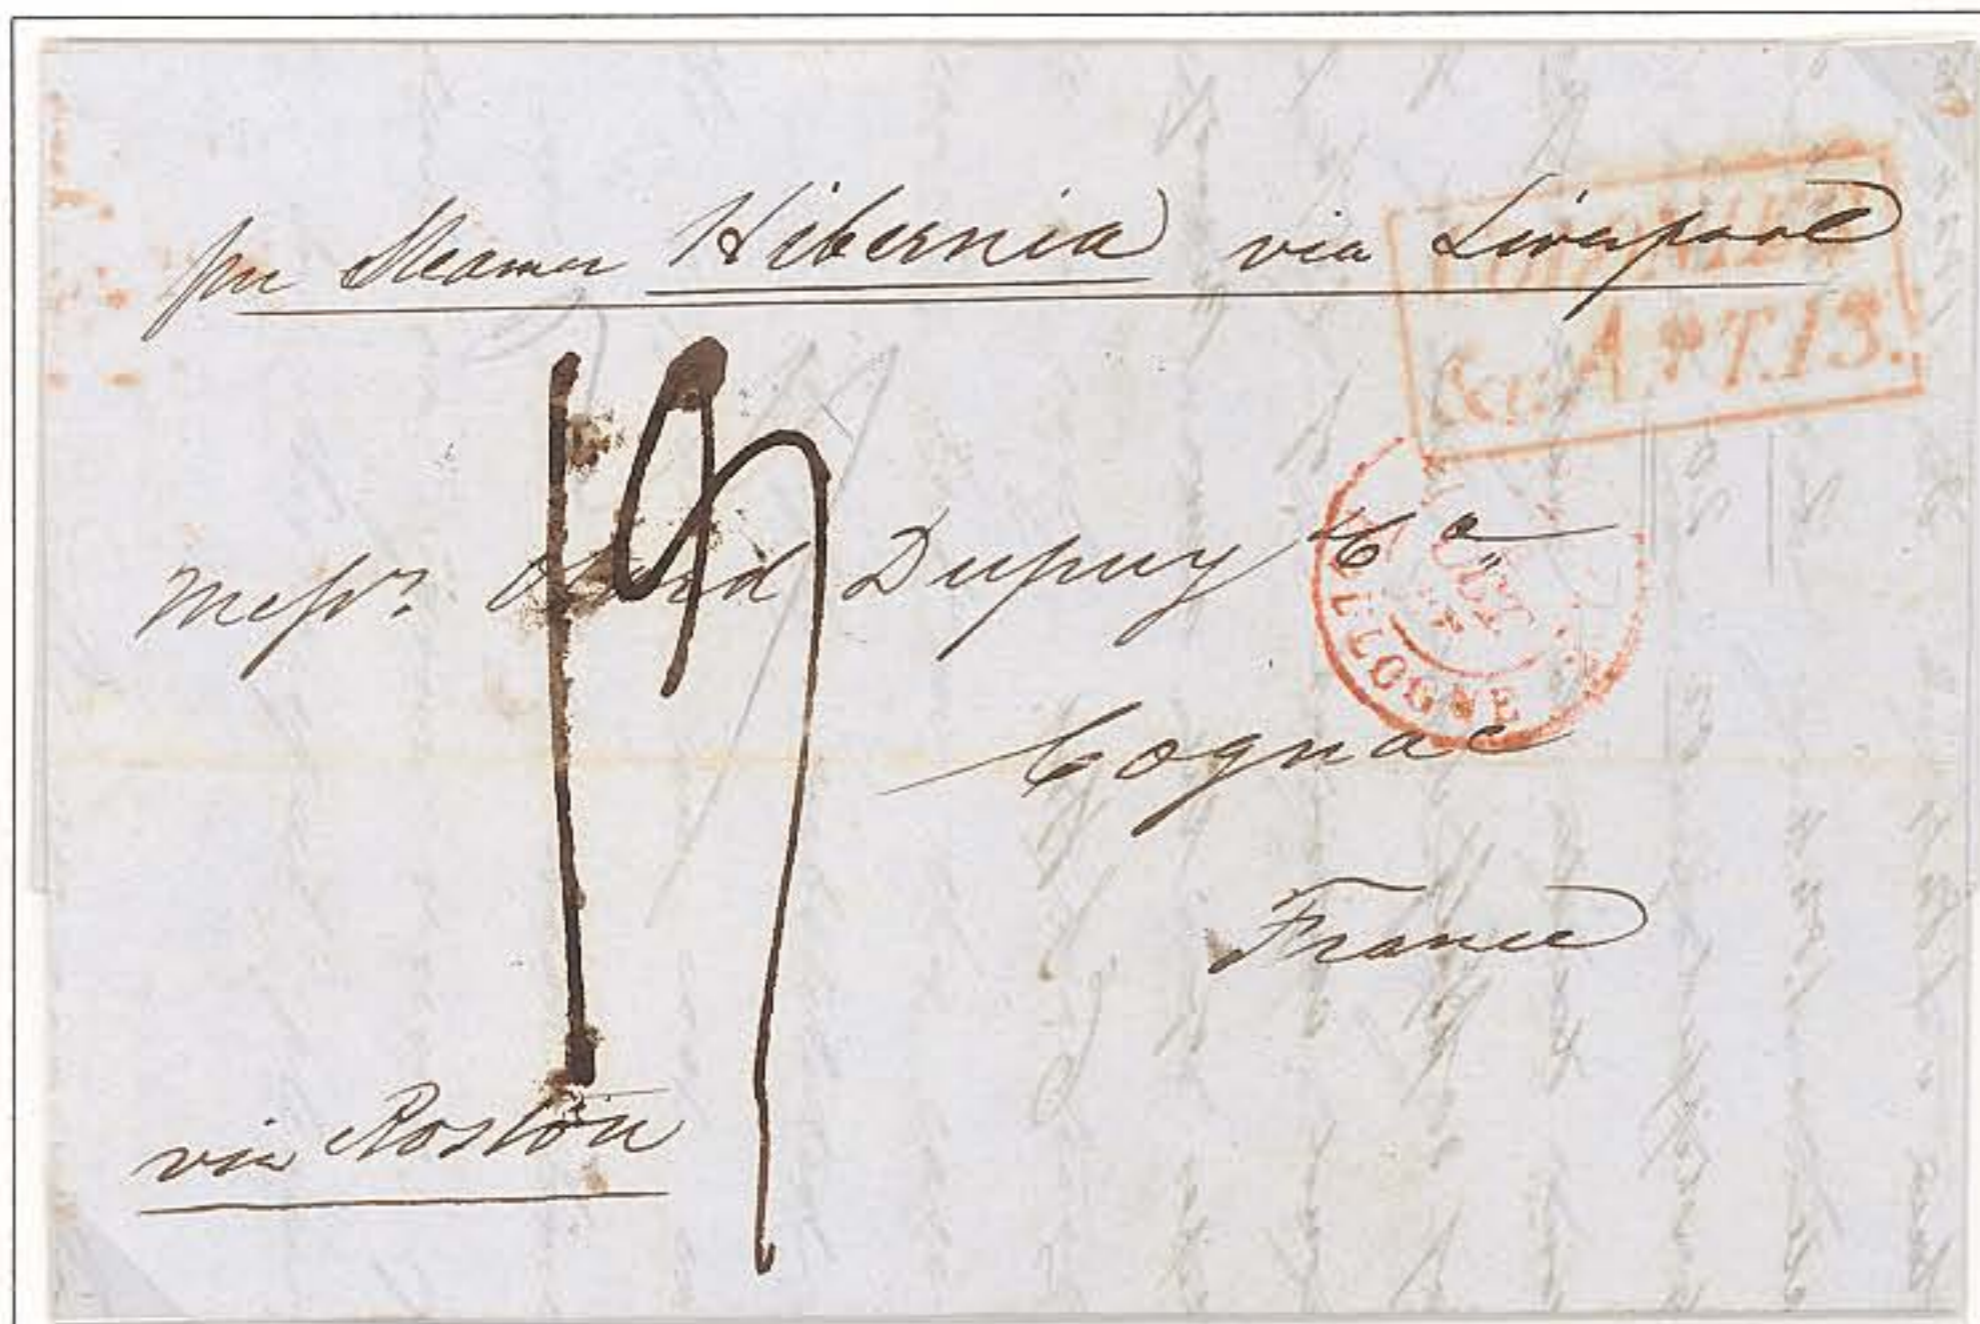 per Steamer Hibernia via Liverpool
COLONIES
&c. ART. 13.
Messrs. Otard Dupuy & Co
BOULOGNE
Cognac
France
via Boston